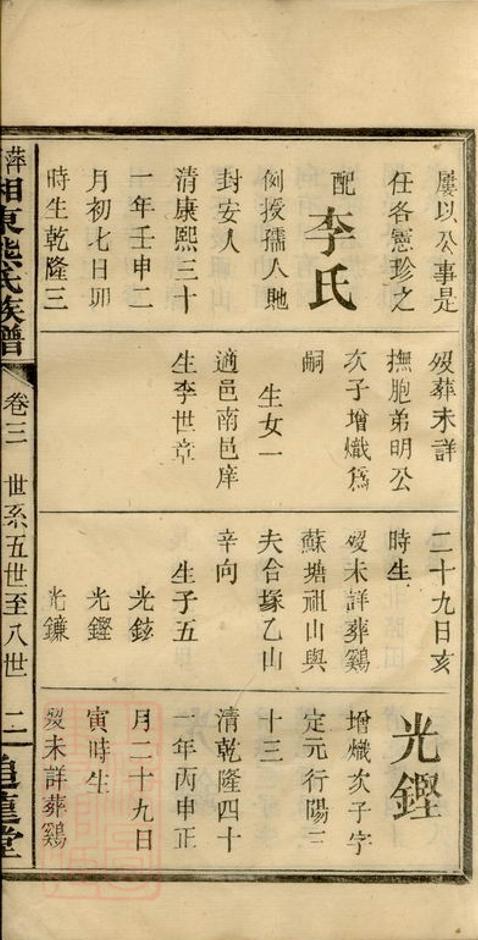 屢以公事是
任各憲珍之
配李氏
例授孺人貤
封安人
清康熙三十
一年壬申二
月初七日卯
時生乾隆三
歿葬未詳
撫胞弟明公
次子增熾爲
嗣
生女一
適邑南邑庠
生李世章
二十九日亥
時生
歿未詳葬鷄
蘇塘祖山與
夫合塚乙山
辛向
生子五
光鉉
光鏗
光鐮
光鏗
增熾次子字
定元行陽三
十三
清乾隆四十
一年丙申正
月二十九日
寅時生
歿未詳葬鷄
萍
湘東熊氏族譜
卷三
世系五世至八世
二
追遠堂